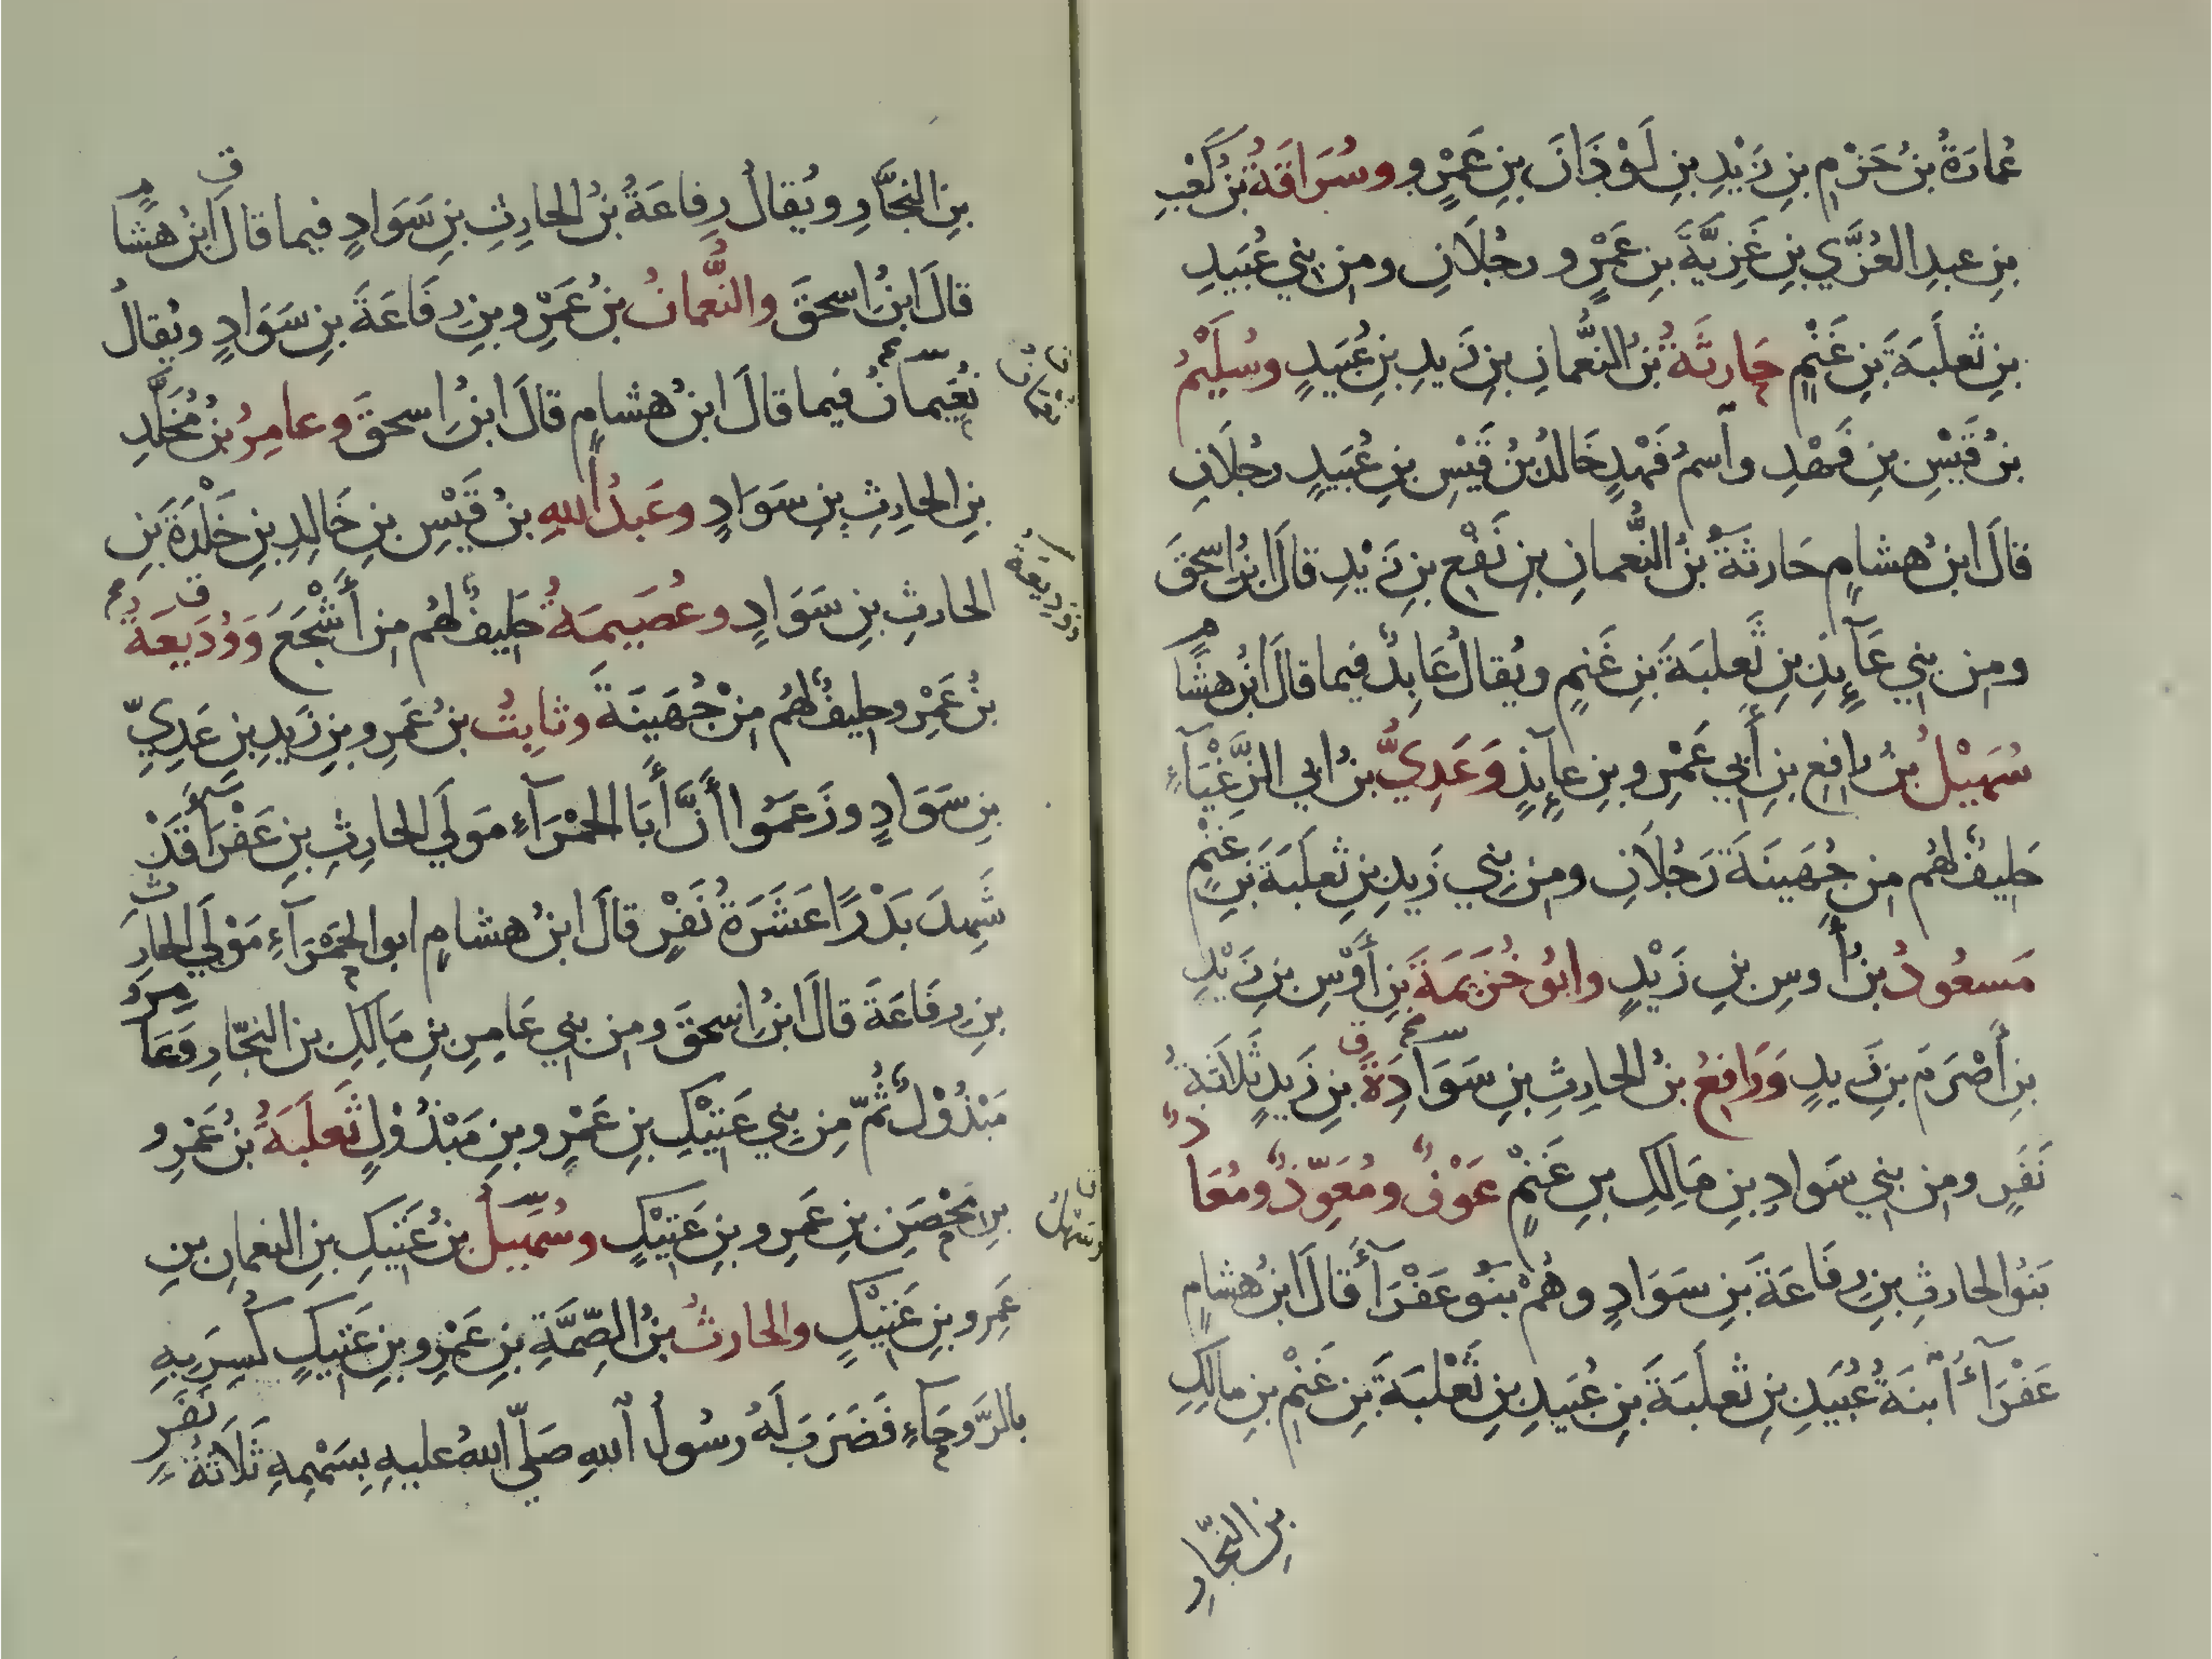 عُمَارَةُ بنُ حَزْمِ بنِ زَيْدِ بنِ لَوْذَانَ بنِ عَمْرٍو وسُرَاقَةُ بنُ كَعْبِ
بنِ عبدِ العُزَّي بنِ غَزِيَّةَ بنِ عَمْرٍو رجُلَانِ ومن بني عُبَيدِ
بنِ ثعلَبَةَ بنِ غَنْمٍ حَارِثَةُ بنُ النُّعمانِ بنِ زَيدِ بنِ عُبَيدٍ وسُلَيْمُ
بنُ قَيْسِ بنِ قَهْدِ وآسمُ قَهْدٍ خَالدُ بنُ قَيْسِ بنِ عُبَيدٍ رجُلَانِ
قالَ ابنُ هشامٍ حَارثَةُ بنُ النُّعمانِ بنِ نَفْعِ بنِ زَيْدِ قالَ ابنُ اسحقَ
ومن بني عَآئِذِ بنِ ثَعلبَةَ بنِ غَنمٍ ويُقالُ عَابِدٌ فيما قالَ ابنُ هشامٍ
سُهَيْلُ بنُ رافعِ بنِ أَبي عَمْرِو بنِ عآئِذٍ وَعَدِيُّ بنُ ابي الزَّغْبَآءِ
حَليفٌ لهُم من جُهَينَةَ رَجُلَانِ ومن بني زَيدِ بنِ ثعلَبَةَ بنِ غَنْمٍ
مَسعُودُ بنُ أَوسِ بنِ زَيْدٍ وابُو خُزَيمَةَ بنِ أَوْسِ بنِ زَيْدِ
بنِ أَصْرَمَ بنِ زَيدٍ وَرَافعُ بنُ الحارِثِ بنِ سَوَادَةَ بنِ زَيدٍ ثَلَاثَةُ
نَفَرٍ ومن بني سَوادِ بنِ مَالِكِ بنِ غَنْمٍ عَوْفٌ ومُعَوِّذٌ ومُعَاذٌ
بَنُو الحارثِ بنِ رِفَاعَةَ بنِ سَوَادٍ وهُمْ بَنُو عَفْرَآءَ قَالَ ابنُ هشامٍ
عَفْرَآءُ ٱبنَةُ عُبَيدِ بنِ ثعلَبَةَ بنِ عُبَيدِ بنِ ثَعْلبَةَ بنِ غَنْمِ بنِ مالِكِ
بنِ النجَّارِ
بنِ النجَّارِ ويُقالُ رِفاعَةُ بنُ الحارِثِ بنِ سَوَادٍ فيما قالَ ابنُ هشامٍ
قالَ ابنُ اسحقَ والنُّعمانُ بنُ عَمْرِو بنِ رِفَاعَةَ بنِ سَوَادٍ ويُقالُ
نُعَيمَانُ فيما قالَ ابنُ هشامٍ قالَ ابنُ اسحقَ وعامِرُ بنُ مُخَلَّدِ
نُعْمَانُ
بنِ الحارِثِ بنِ سَوَادٍ وعَبدُ اللهِ بنُ قَيْسِ بنِ خَالِدِ بنِ خَلْدَةَ بَنِ
الحارثِ بنِ سَوَادٍ وعُصَيمَةُ حَليفٌ لهُم من أَشْجَعَ وَوُدَيعَةُ
وَوَدِيعَةُ
بنُ عَمْرٍو حليفٌ لهُم مِنْ جُهَينَةَ وثابِتُ بنُ عَمرِو بنِ زَيدِ بنِ عَدِيِّ
بنِ سَوَادٍ وزَعَمُوا أَنَّ أَبَا الحَمْرَآءِ مَولَي الحارِثِ بنِ عَفْرَآءَ قَدْ
شَهِدَ بَدْرًا عَشَرَةُ نَفَرٍ قالَ ابنُ هشامٍ ابوا الحَمْرَآءِ مَوْلَي الحارِثِ
بنِ رِفَاعَةَ قالَ ابنُ اسحقَ ومن بني عَامِرِ بنِ مَالِكِ بن النجّارِ وَعَامِرُ
مَبْذُوْلٌ ثُمّ مِن بني عَتِيْكِ بنِ عَمْرِو بنِ مَبْذُوْلٍ ثَعلَبَةُ بنُ عَمْرِو
بنِ مِحْصَنِ بنِ عَمرِو بنِ عَتِيْكٍ وسُهَيلُ بنُ عَتيكِ بنِ النعمانِ بنِ
وسَهْلُ
عَمرِو بنِ عَتيْكٍ والحارثُ بنُ الصِّمَّةِ بنِ عَمْرِو بنِ عَتيكٍ كُسِرَ بِهِ
بالرَّوحَآءِ فَضَرَبَ لَهُ رسُولُ اللهِ صَلّي اللهُ عليهِ بِسَهْمِهِ ثَلَاثَةُ نَفَرٍ